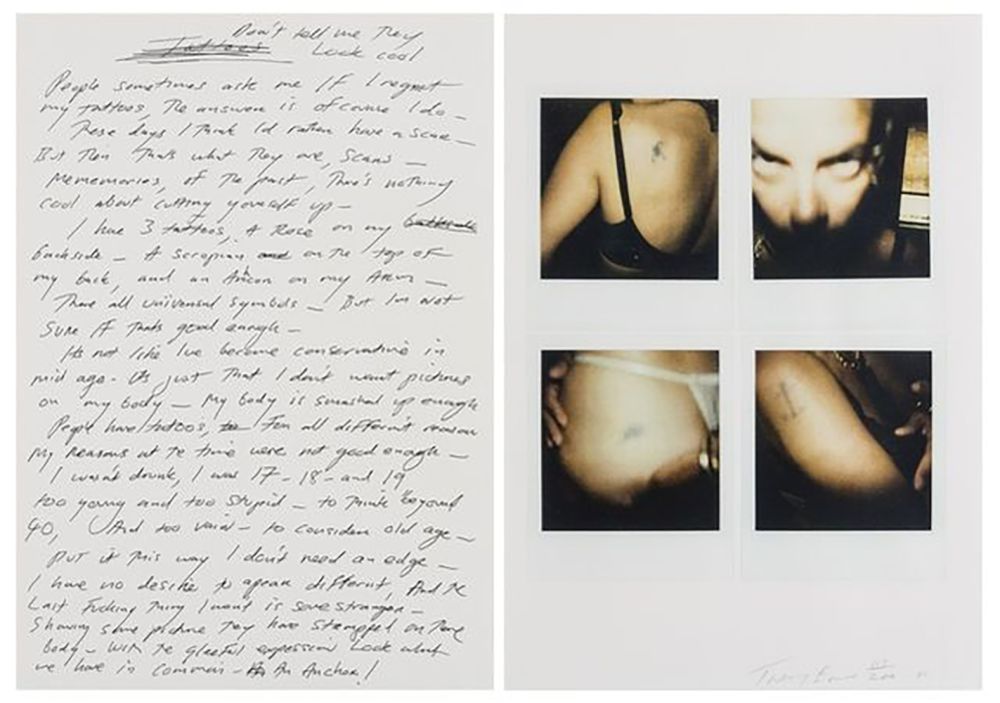 Don't tell me They
Tattoos Look cool
People sometimes ask me If I regret
my tattoos, The answer is of course I do -
These days I Think I'd rather have a scar -
But Then That's what They are, Scars -
Mememories, of The past, There's nothing
cool about cutting yourself up -
I have 3 tattoos, A Rose on my
backside - A scorpian and on the top of
my back, and an Ancor on my Arm -
There all universal symbols - But Im not
Sure If thats good enough -
Its not like Ive become conservative in
mid age - Its just That I don't want pictures
on my body - My body is smashed up enough
People have tattoo's, For all different reason
My Reasons at The time were not good enogh -
I wasn't drunk, I was 17 - 18 - and 19
too young and too stupid - to Think beyond
40, And too vain - to consider old age -
PUT it This way I don't need an edge -
I have no desire to apear different, And The
Last Fucking Thing I want is some stranger -
Showing some picture They have Stampped on There
body - With The gleeful expression Look what
we have in common - An Anchor!